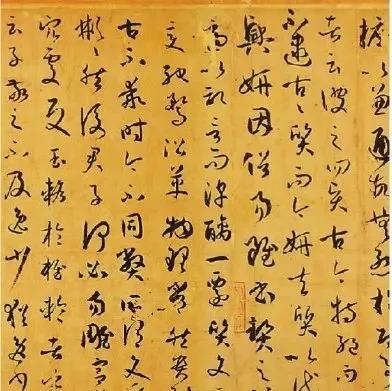 擬以兼通故無慚於即
者云彼之四賢古今特絕而今
不逮古古質而今妍夫質以代
興妍因俗易雖書契之
適以記言而淳醨一遷質文
變馳鶩沿革物理常然貴
古不乖時今不同弊所謂文
彬彬然後君子何必易雕宮
穴處反玉輅於椎輪者乎
云子敬之不及逸少猶逸少